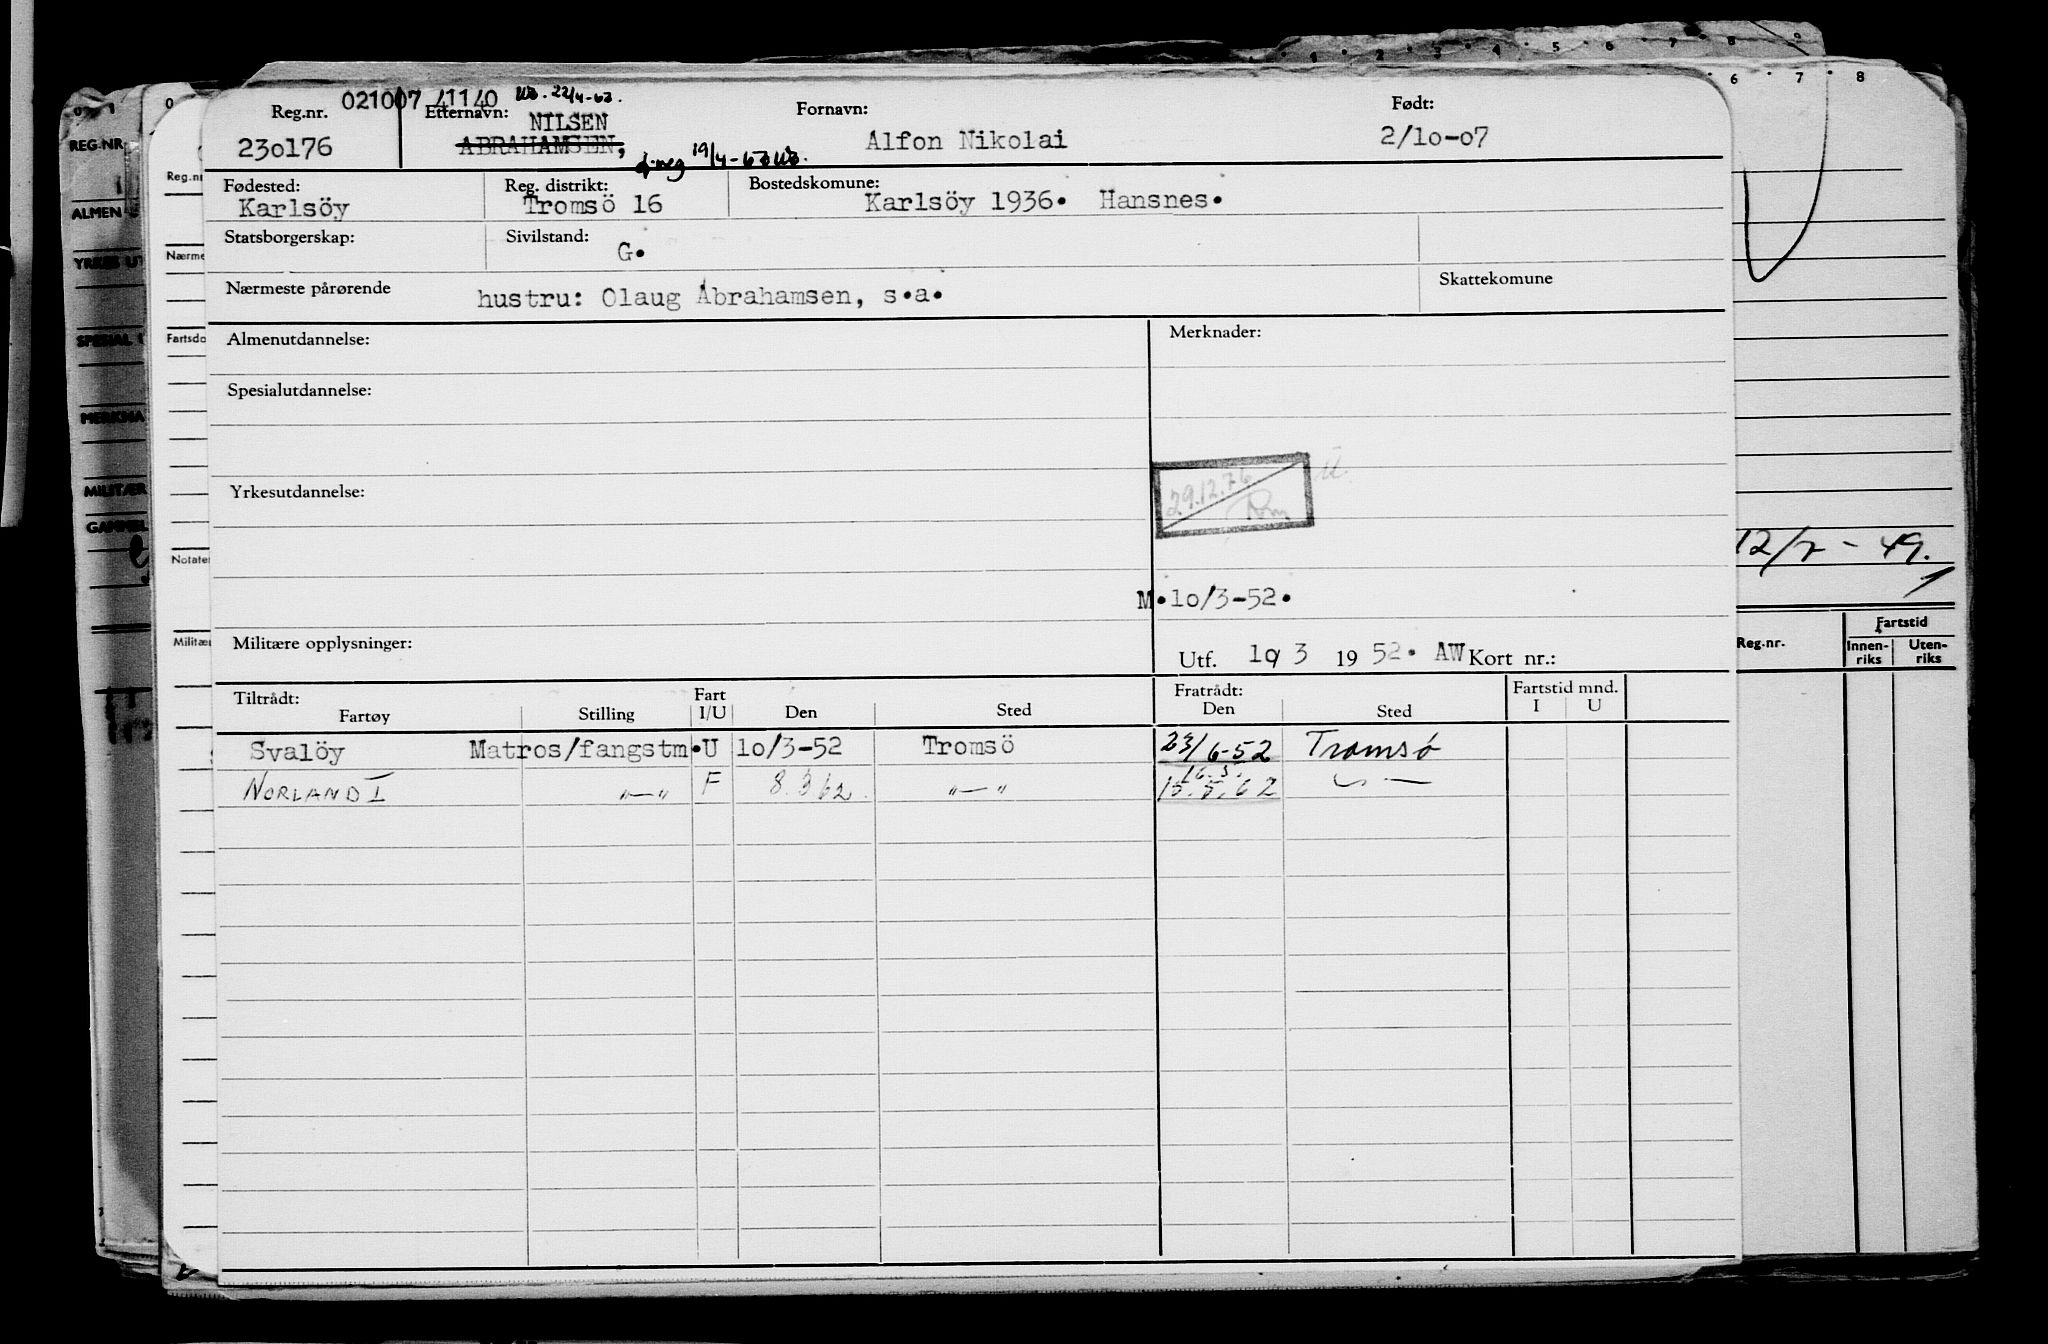 021007 41140 22/4-63.
Reg.nr. Etternavn: Fornavn: Født:
NILSEN
230176 ABRAHAMSEN, Alfon Nikolai 2/10-07
19/4-63
Fødested: Reg. distrikt: Bostedskomune:
Karlsöy Tromsö 16 Karlsöy 1936. Hansnes.
Statsborgerskap: Sivilstand:
G.
Nærmeste pårørende hustru: Olaug Abrahamsen, s.a. Skattekomune
Almenutdannelse: Merknader:
Spesialutdannelse:
29.12.76
Yrkesutdannelse:
M.10/3-52.
Militære opplysninger: Utf. 10/3 1952. AW Kort nr.:
Tiltrådt: Fart Fratrådt: Fartstid mnd.
Fartøy Stilling I/U Den Sted Den Sted I U
Svalöy Matros/fangstm.U 10/3-52 Tromsö 23/6-52 Tromsø
16.5.
NORLAND I "—" F 8.3.62. "—" 15.5.62 "—"
0 1
REG.NR.
ALMEN
YRKES UT
SPESIAL
MERKNA
MILITÆR
GAMMEL
0
Reg.nr
Nærme
Fartsdo
Notater
Militær
1 2 3 4 5 6 7 8 9
6 7 8
12/7 - 49.
Reg.nr. Fartstid
Innen-riks Uten-riks